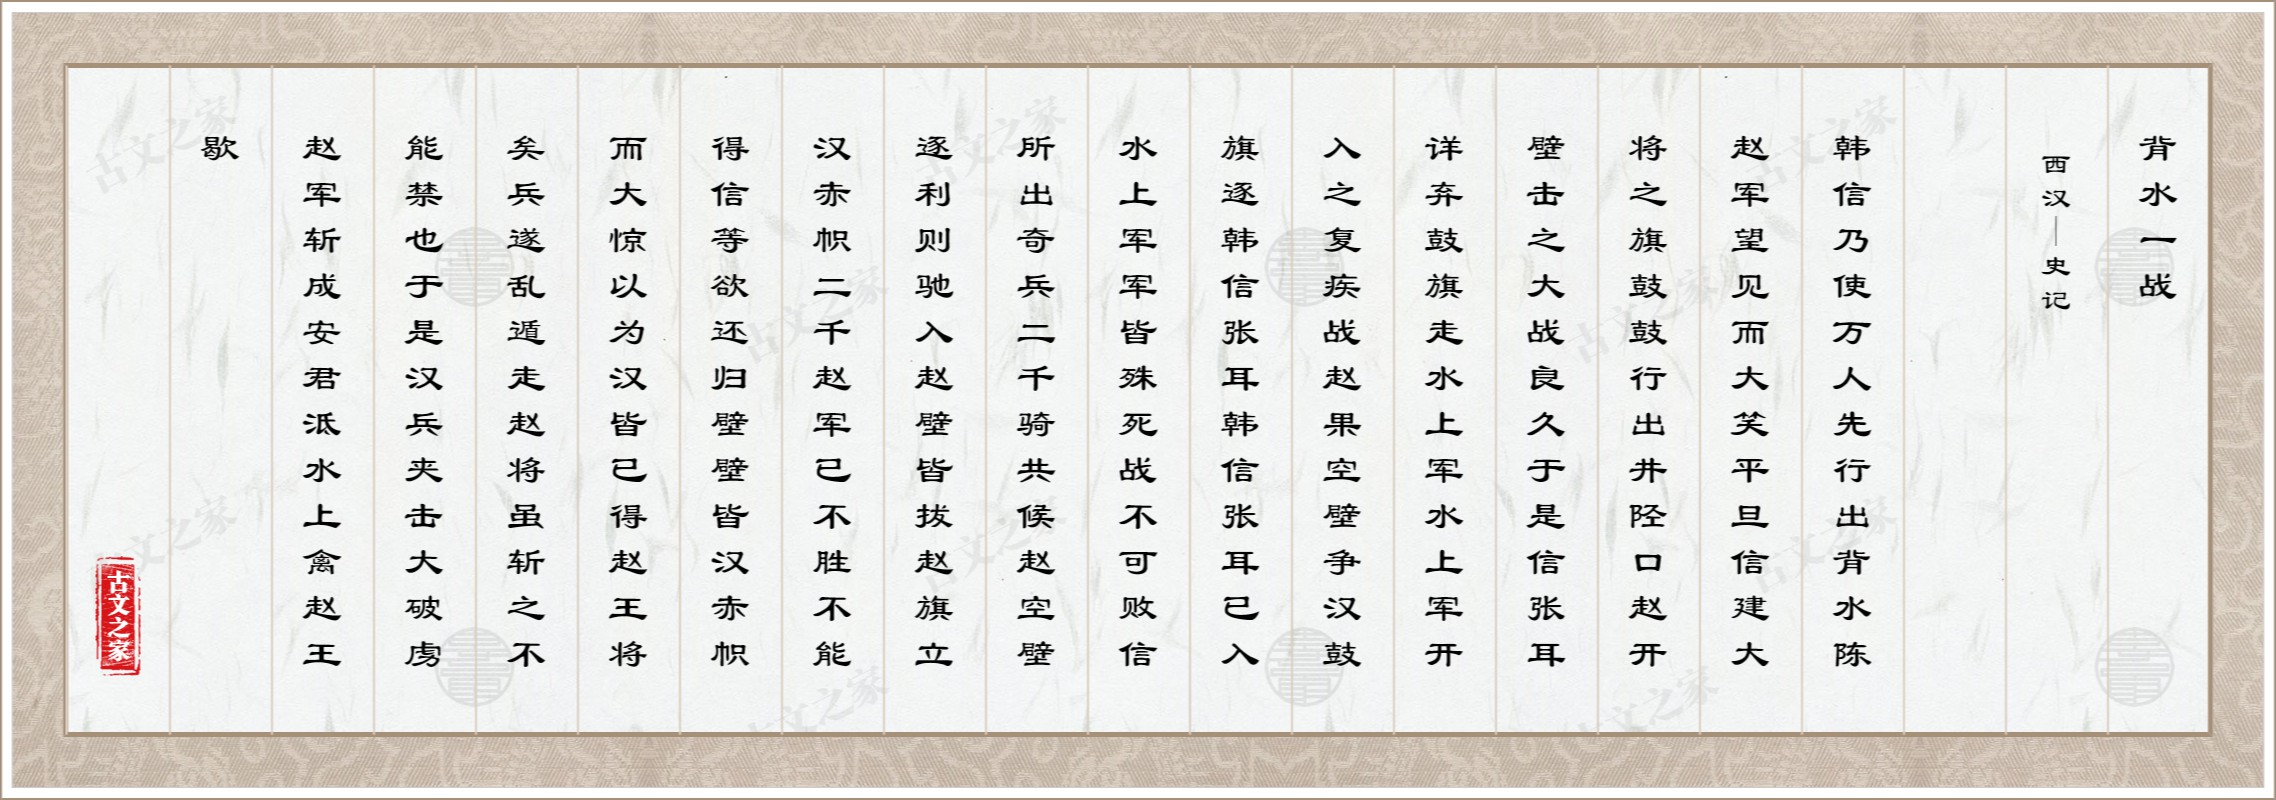 背水一战
西汉—史记
韩信乃使万人先行出背水陈
赵军望见而大笑平旦信建大
将之旗鼓鼓行出井陉口赵开
壁击之大战良久于是信张耳
详弃鼓旗走水上军水上军开
入之复疾战赵果空壁争汉鼓
旗逐韩信张耳韩信张耳已入
水上军军皆殊死战不可败信
所出奇兵二千骑共候赵空壁
逐利则驰入赵壁皆拔赵旗立
汉赤帜二千赵军已不胜不能
得信等欲还归壁壁皆汉赤帜
而大惊以为汉皆已得赵王将
矣兵遂乱遁走赵将虽斩之不
能禁也于是汉兵夹击大破虏
赵军斩成安君泜水上禽赵王
歇
古文之家